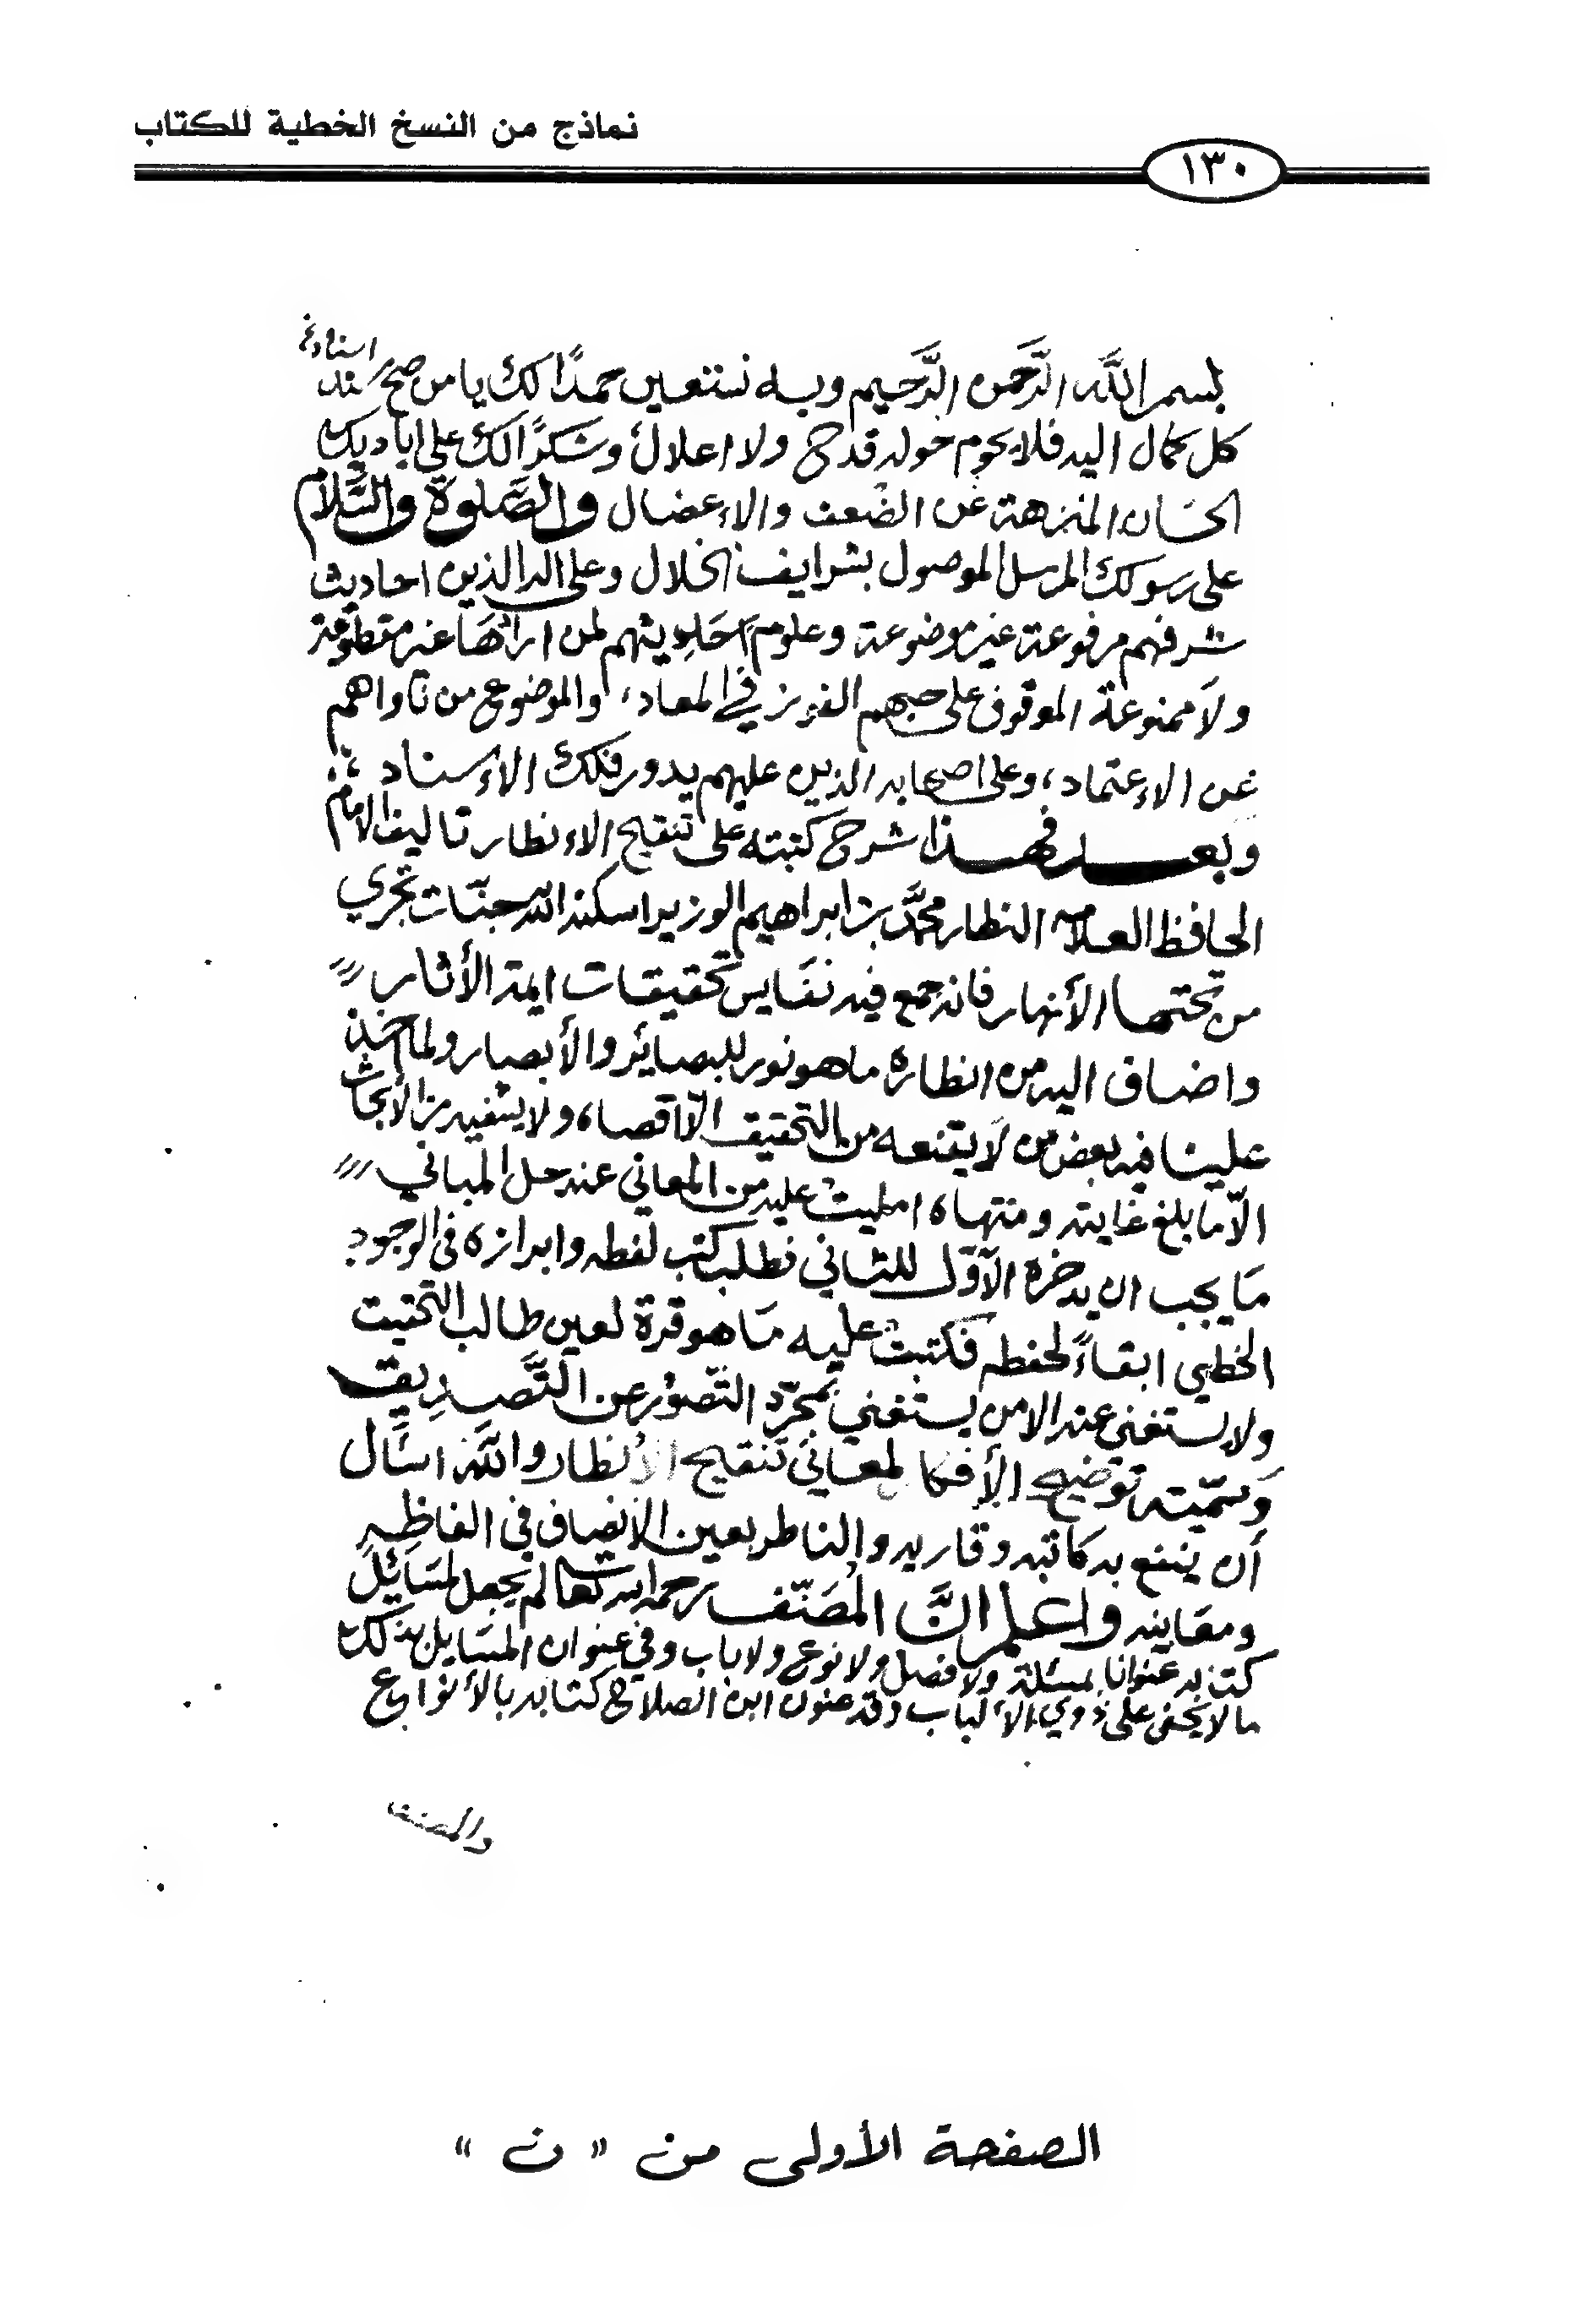 نماذج من النسخ الخطية للكتاب
١٣٠
اسناد
بسم الله الرَّحمن الرَّحيم وبه نستعين حمدًا لك يا من صح سند
كل كمال اليه فلا يحوم حوله قدح ولا اعلال وشكرًا لك على اياديك
الحسان المنزهة عن الضعف والاعضال والصَّلوة والسَّلام
على رسولك المرسل الموصول بشرايف الخلال وعلى اله الذين احاديث
شرفهم مرفوعة غير موضوعة وعلوم احاديثهم لمن ارادها غير مقطوعة
ولا ممنوعة الموقوف على حبهم الفوز في المعاد، والموضوع من ناواهم
عن الاعتماد، وعلى اصحابه الذين عليهم يدور فلك الاسناد
وبعد فهذا شرح كتبته على تنقيح الانظار تاليف الامام
الحافظ العلامة النظار محمَّد بن ابراهيم الوزير اسكنه الله جنّات تجري
من تحتها الأنهار فانه جمع فيه نفايس تحقيقات ايمة الأثار
واضاف اليه من انظاره ما هو نور للبصائر والأبصار ولما اخذ
علينا فيه بعض من لا يقنعه من التحقيق الّا اقصاه ولا يشفيه من الأبحاث
الّا ما بلغ غايته ومنتهاه امليت عليه من المعاني عند حل المباني
ما يجب ان يدخره الأوّل للثاني فطلب كتب لفظه وابرازه في الوجود
الخطي ابقاءً لحفظه فكتبت عليه ما هو قرة لعين طالب التحقيق
ولا يستغني عنه الا من يستغني بمجرّد التّصوّر عن التَّصديق
وسمّيته توضيح الأفكار لمعاني تنقيح الأنظار والله اسأل
أن ينفع به كاتبه وقاريه والناظر بعين الإنصاف في الفاظه
ومعانيه واعلم انَّ المُصَنّف رحمه الله تعالى لم يجعل لمسَائل
كتابه عنوانا بمسئلة ولا فصل ولا نوع ولا باب وفي عنوان المسايل بذلك
ما لا يخفى على ذوي الألباب وقد عنون ابن الصلاح كتابه بالأنواع
والمصنف
الصفحة الأولى من « ن »